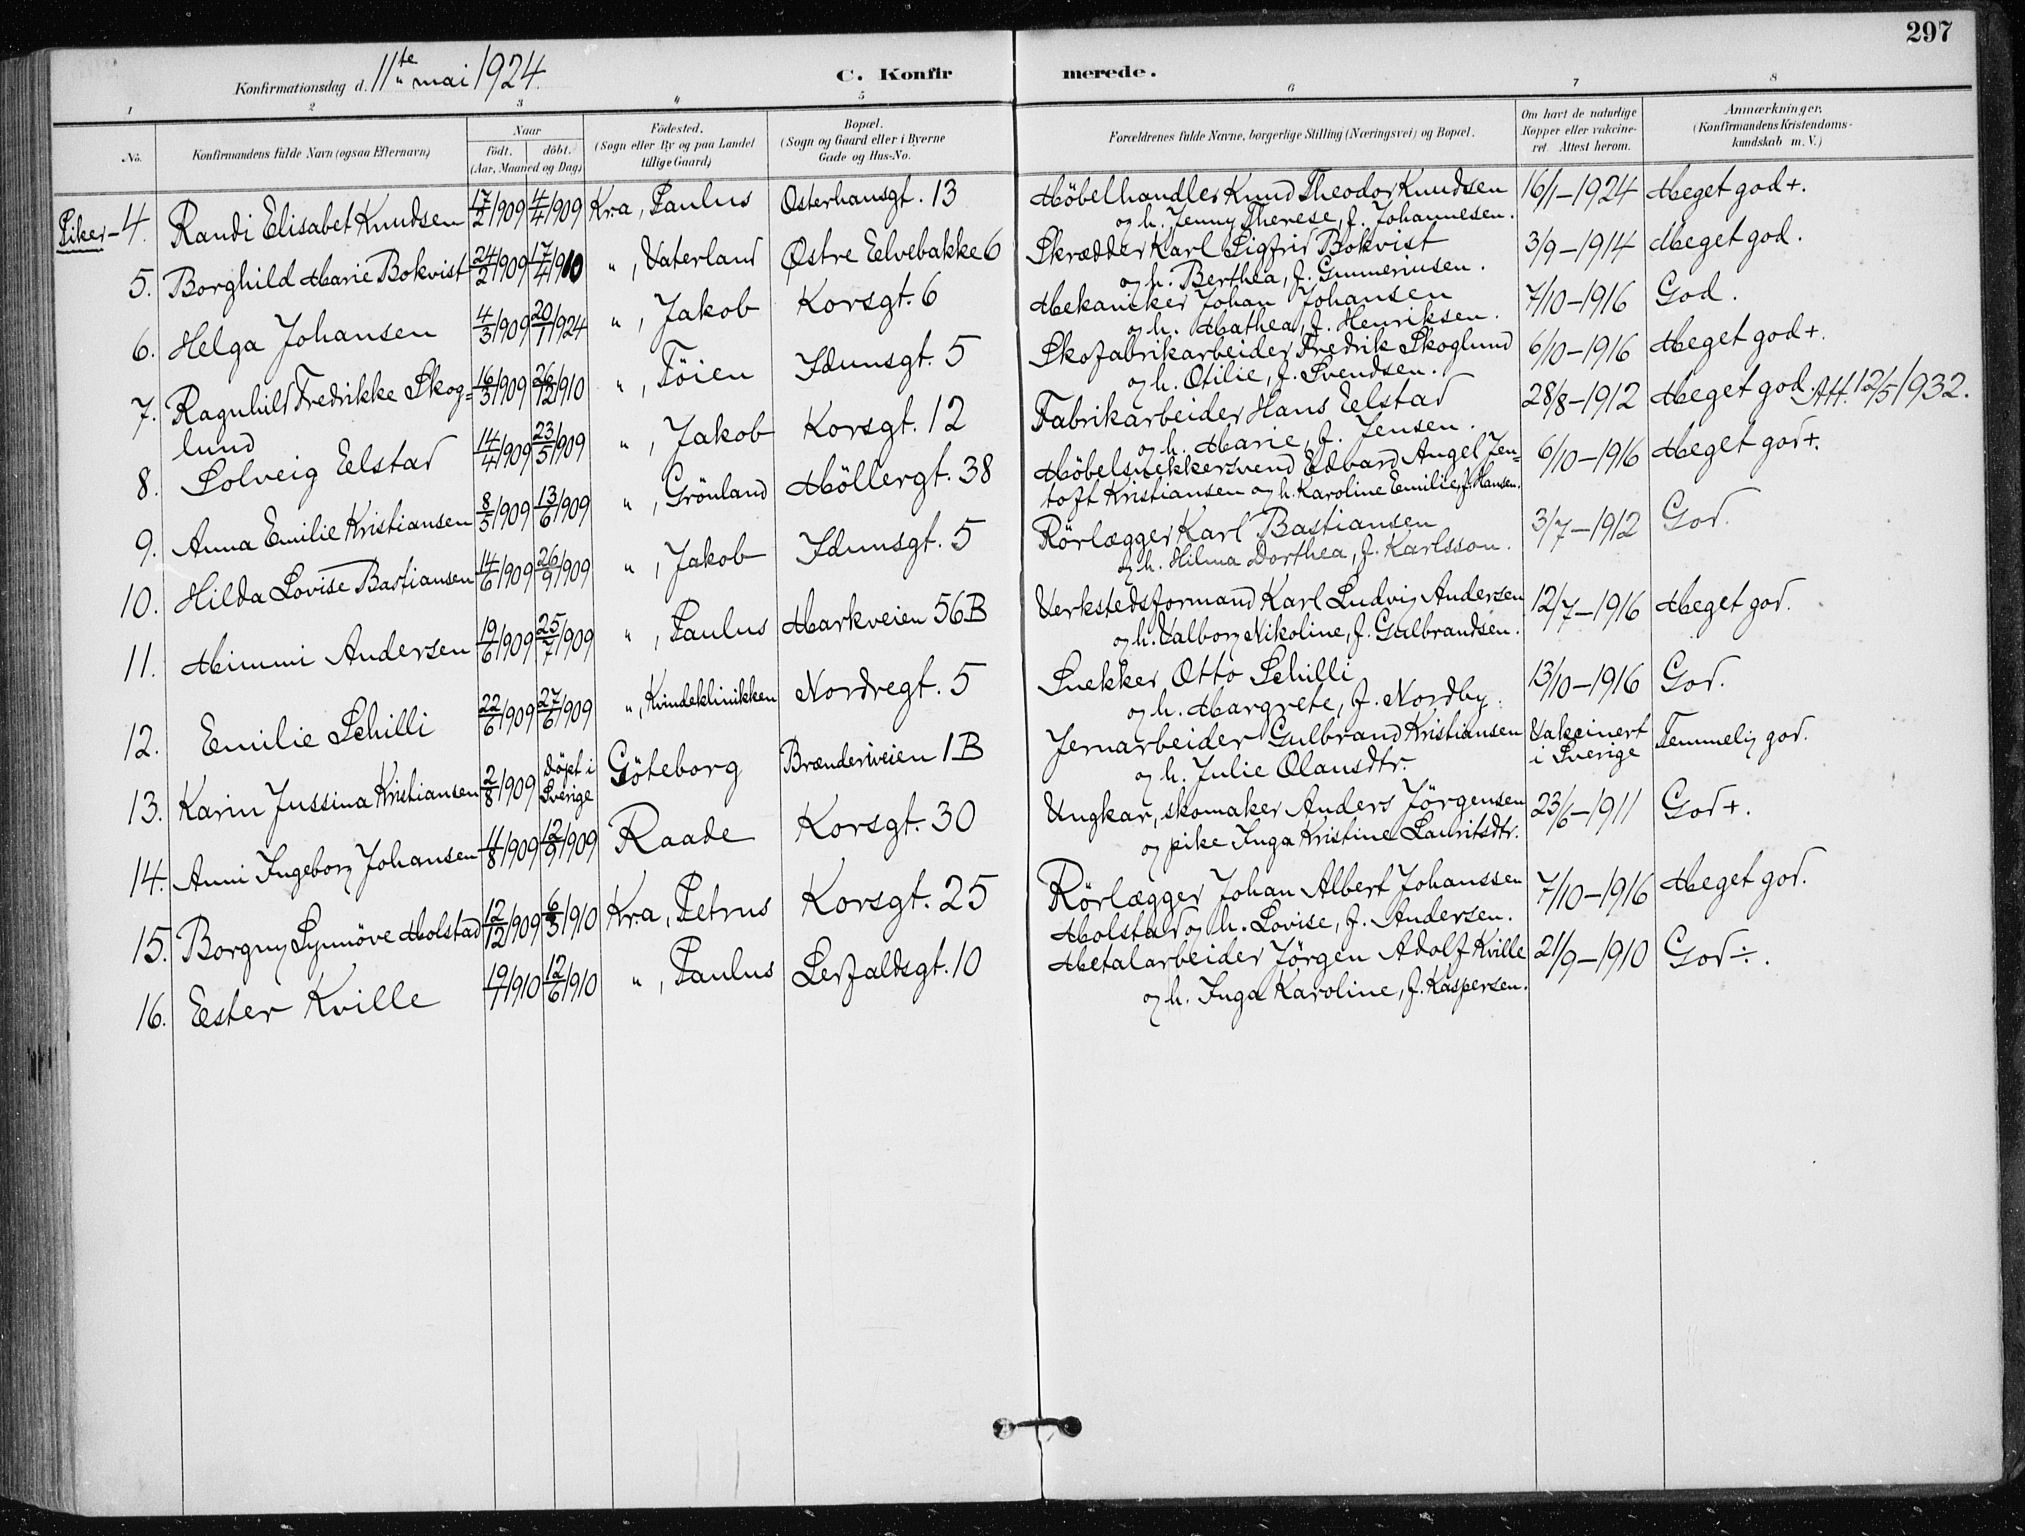 297
Konfirmationsdag d. 11te mai 1924.
C. Konfirmerede.
1 2 3 4 5 6 7 8
No. Konfirmandens fulde Navn (ogsaa Efternavn) Naar født. døbt. (Aar, Maaned og Dag) Fødested. (Sogn eller By og paa Landet tillige Gaard) Bopæl. (Sogn og Gaard eller i Byerne Gade og Hus-No. Forældrenes fulde Navne, borgerlige Stilling (Næringsvei) og Bopæl. Om havt de naturlige Kopper eller vakcineret. Attest herom. Anmærkninger. (Konfirmandens Kristendomskundskab m. V.)
Piker – 4. Randi Elisabet Knudsen 17/2 1909 4/4 1909 Kr.a, Paulus Osterhausgt. 13 Møbelhandler Knud Theodor Knudsen 16/1–1924 Meget god +.
og h. Jenny Therese, f. Johannesen.
5. Borghild Marie Bokvist 24/2 1909 17/4 1910 ", Vaterland Østre Elvebakke 6 Skrædder Karl Sigfrid Bokvist 3/9–1914 Meget god.
og h. Berthea, f. Gunneriusen.
6. Helga Johansen 4/3 1909 20/1 1924 ", Jakob Korsgt. 6 Mekaniker Johan Johansen 7/10–1916 God.
og h. Mathea, f. Henriksen.
7. Ragnhild Fredrikke Skog= 16/3 1909 26/12 1910 ", Tøien Idunsgt. 5 Skofabrikarbeider Fredrik Skoglund 6/10–1916 Meget god +.
lund og h. Otilie, f. Svendsen.
8. Solveig Elstad 14/4 1909 23/5 1909 ", Jakob Korsgt. 12 Fabrikarbeider Hans Elstad 28/8–1912 Meget god. Att. 12/5 1932.
og h. Marie, f. Jensen.
9. Anna Emilie Kristiansen 8/5 1909 13/6 1909 ", Grønland Møllergt. 38 Møbelsnekkersvend Edvard Angel Jen= 6/10–1916 Meget god +.
toft Kristiansen og h. Karoline Emilie, f. Hansen.
10. Hilda Lovise Bastiansen 14/6 1909 26/9 1909 ", Jakob Idunsgt. 5 Rørlægger Karl Bastiansen 3/7–1912 God.
og h. Hilma Dorthea, f. Karlsson.
11. Mimmi Andersen 19/6 1909 25/7 1909 ", Paulus Markveien 56B Verkstedsformand Karl Ludvig Andersen 12/7–1916 Meget god.
og h. Valborg Nikoline, f. Gulbrandsen.
12. Emilie Schilli 22/6 1909 27/6 1909 ", Kvindeklinikken Nordregt. 5 Snekker Otto Schilli 13/10–1916 God.
og h. Margrete, f. Nordby.
13. Karin Jussina Kristiansen 2/8 1909 Døpt i Sverige Göteborg Brænderiveien 1B Jernarbeider Gulbrand Kristiansen Vakcinert i Sverige Temmelig god.
og h. Julie Olausdtr.
14. Anni Ingeborg Johansen 11/8 1909 12/9 1909 Raade Korsgt. 30 Ungkar, skomaker Anders Jørgensen 23/6–1911 God +.
og pike Inga Kristine Lauritsdtr.
15. Borgny Synnøve Molstad 12/12 1909 6/3 1910 Kr.a, Petrus Korsgt. 25 Rørlægger Johan Albert Johanssen 7/10–1916 Meget god.
Molstad og h. Lovise, f. Andersen.
16. Ester Kville 19/1 1910 12/6 1910 ", Paulus Lerfaldsgt. 10 Metalarbeider Jørgen Adolf Kville 21/9–1910 God ÷.
og h. Inga Karoline, f. Kaspersen.